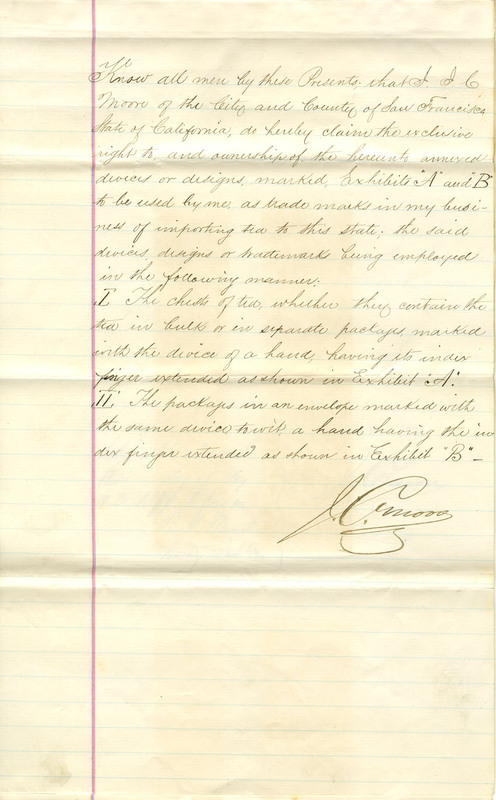 Know all men by these Presents. that I. J. C
Moore of the City and County of San Francisco
State of California, do hereby claim the exclusive
right to, and ownership of, the hereunto annexed
devices or designs, marked, Exhibits "A" and "B"
to be used by me, as trade marks in my busi-
ness of importing tea to this State; the said
devices, designs or trademarks being employed
in the following manner:
I. The chests of tea, whether they contain the
tea in bulk or in separate packages, marked
with the device of a hand, having its index
finger extended as shown in Exhibit "A".
II. The packages in an envelope marked with
the same device, to wit, a hand having the in
dex finger extended as shown in Exhibit "B" –
J. C. Moore